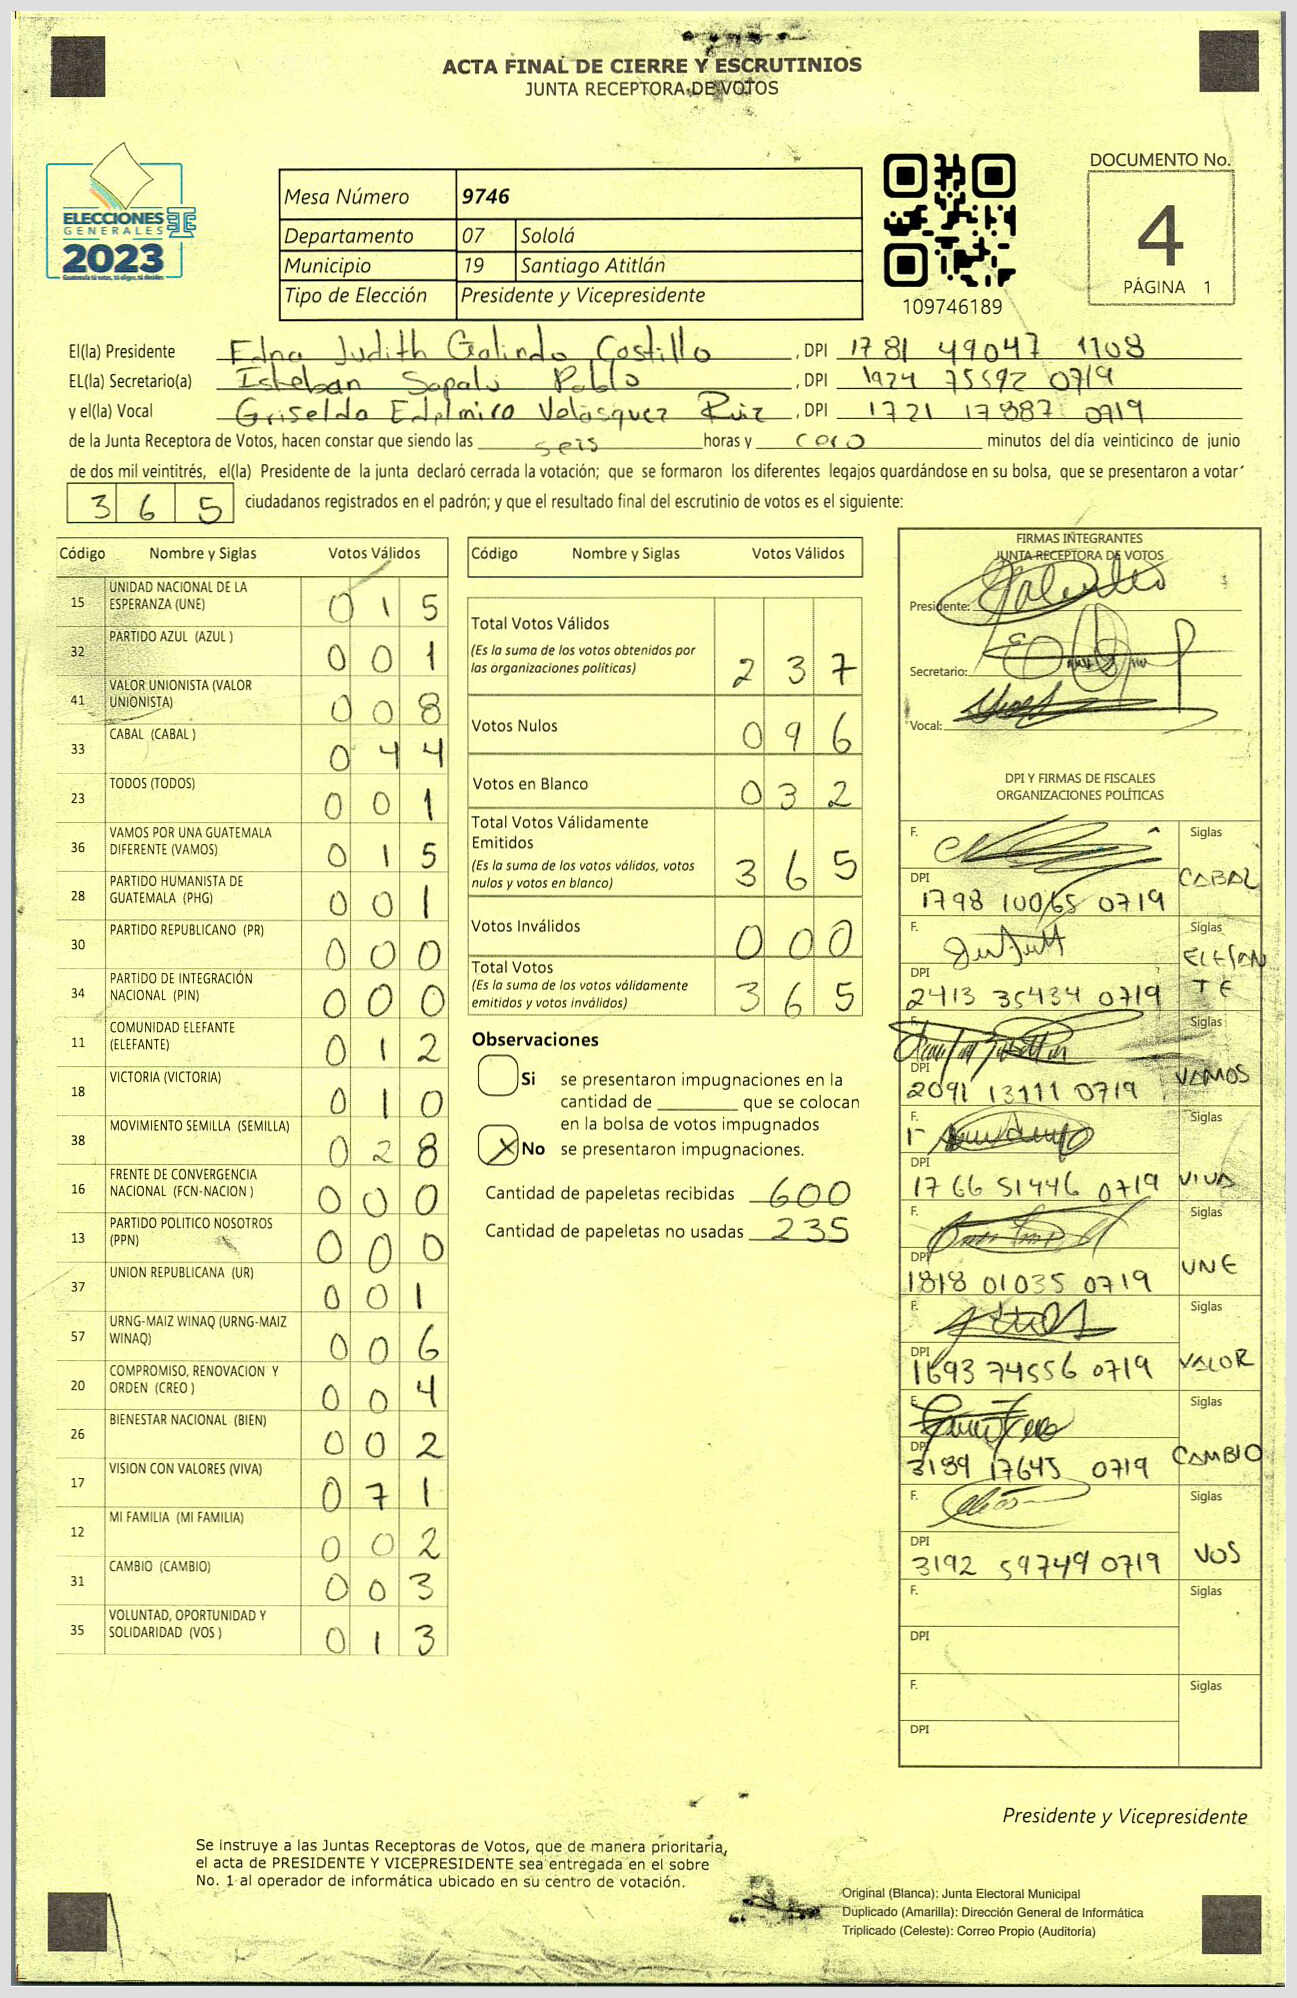 ACTA FINAL DE CIERRE Y ESCRUTINIOS
JUNTA RECEPTORA DE VOTOS
ELECCIONES
GENERALES
2023
Mesa Número 9746
Departamento 07 Sololá
Municipio 19 Santiago Atitlán
Tipo de Elección Presidente y Vicepresidente
109746189
DOCUMENTO No.
4
PÁGINA 1
El(la) Presidente Edna Judith Galindo Castillo, DPI 1781 49047 1108
EL(la) Secretario(a) Esteban Sapalú Pablo, DPI 1924 75592 0719
y el(la) Vocal Griselda Velásquez Ruiz, DPI 1721 17887 0719
de la Junta Receptora de Votos, hacen constar que siendo las seis horas y cero minutos del día veinticinco de junio
de dos mil veintitrés, el(la) Presidente de la junta declaró cerrada la votación; que se formaron los diferentes legajos quardándose en su bolsa, que se presentaron a votar
365 ciudadanos registrados en el padrón; y que el resultado final del escrutinio de votos es el siguiente:
Código Nombre y Siglas Votos Válidos
15 UNIDAD NACIONAL DE LA ESPERANZA (UNE) 015
32 PARTIDO AZUL (AZUL ) 001
41 VALOR UNIONISTA (VALOR UNIONISTA) 008
33 CABAL (CABAL ) 044
23 TODOS (TODOS) 001
36 VAMOS POR UNA GUATEMALA DIFERENTE (VAMOS) 015
28 PARTIDO HUMANISTA DE GUATEMALA (PHG) 001
30 PARTIDO REPUBLICANO (PR) 000
34 PARTIDO DE INTEGRACIÓN NACIONAL (PIN) 000
11 COMUNIDAD ELEFANTE (ELEFANTE) 012
18 VICTORIA (VICTORIA) 010
38 MOVIMIENTO SEMILLA (SEMILLA) 028
16 FRENTE DE CONVERGENCIA NACIONAL (FCN-NACION ) 000
13 PARTIDO POLITICO NOSOTROS (PPN) 000
37 UNION REPUBLICANA (UR) 001
57 URNG-MAIZ WINAQ (URNG-MAIZ WINAQ) 006
20 COMPROMISO, RENOVACION Y ORDEN (CREO ) 004
26 BIENESTAR NACIONAL (BIEN) 002
17 VISION CON VALORES (VIVA) 071
12 MI FAMILIA (MI FAMILIA) 002
31 CAMBIO (CAMBIO) 003
35 VOLUNTAD, OPORTUNIDAD Y SOLIDARIDAD (VOS ) 013
Código Nombre y Siglas Votos Válidos
Total Votos Válidos 237
(Es la suma de los votos obtenidos por
las organizaciones políticas)
Votos Nulos 096
Votos en Blanco 032
Total Votos Válidamente
Emitidos 365
(Es la suma de los votos válidos, votos
nulos y votos en blanco)
Votos Inválidos 000
Total Votos 365
(Es la suma de los votos válidamente
emitidos y votos inválidos)
Observaciones
Si se presentaron impugnaciones en la
cantidad de ________ que se colocan
en la bolsa de votos impugnados
X No se presentaron impugnaciones.
Cantidad de papeletas recibidas 600
Cantidad de papeletas no usadas 235
FIRMAS INTEGRANTES
JUNTA RECEPTORA DE VOTOS
Presidente:
Secretario:
Vocal:
DPI Y FIRMAS DE FISCALES
ORGANIZACIONES POLÍTICAS
F. Siglas CABAL
DPI 1798 10065 0719
F. Siglas ELEFANTE
DPI 2413 35434 0719
F. Siglas VAMOS
DPI 2091 13111 0719
F. Siglas VIVA
DPI 1766 51446 0719
F. Siglas UNE
DPI 1818 01035 0719
F. Siglas VALOR
DPI 1693 74556 0719
F. Siglas CAMBIO
DPI 3189 17645 0719
F. Siglas VOS
DPI 3192 59749 0719
F. Siglas
DPI
F. Siglas
DPI
Presidente y Vicepresidente
Se instruye a las Juntas Receptoras de Votos, que de manera prioritaria,
el acta de PRESIDENTE Y VICEPRESIDENTE sea entregada en el sobre
No. 1 al operador de informática ubicado en su centro de votación.
Original (Blanca): Junta Electoral Municipal
Duplicado (Amarilla): Dirección General de Informática
Triplicado (Celeste): Correo Propio (Auditoría)